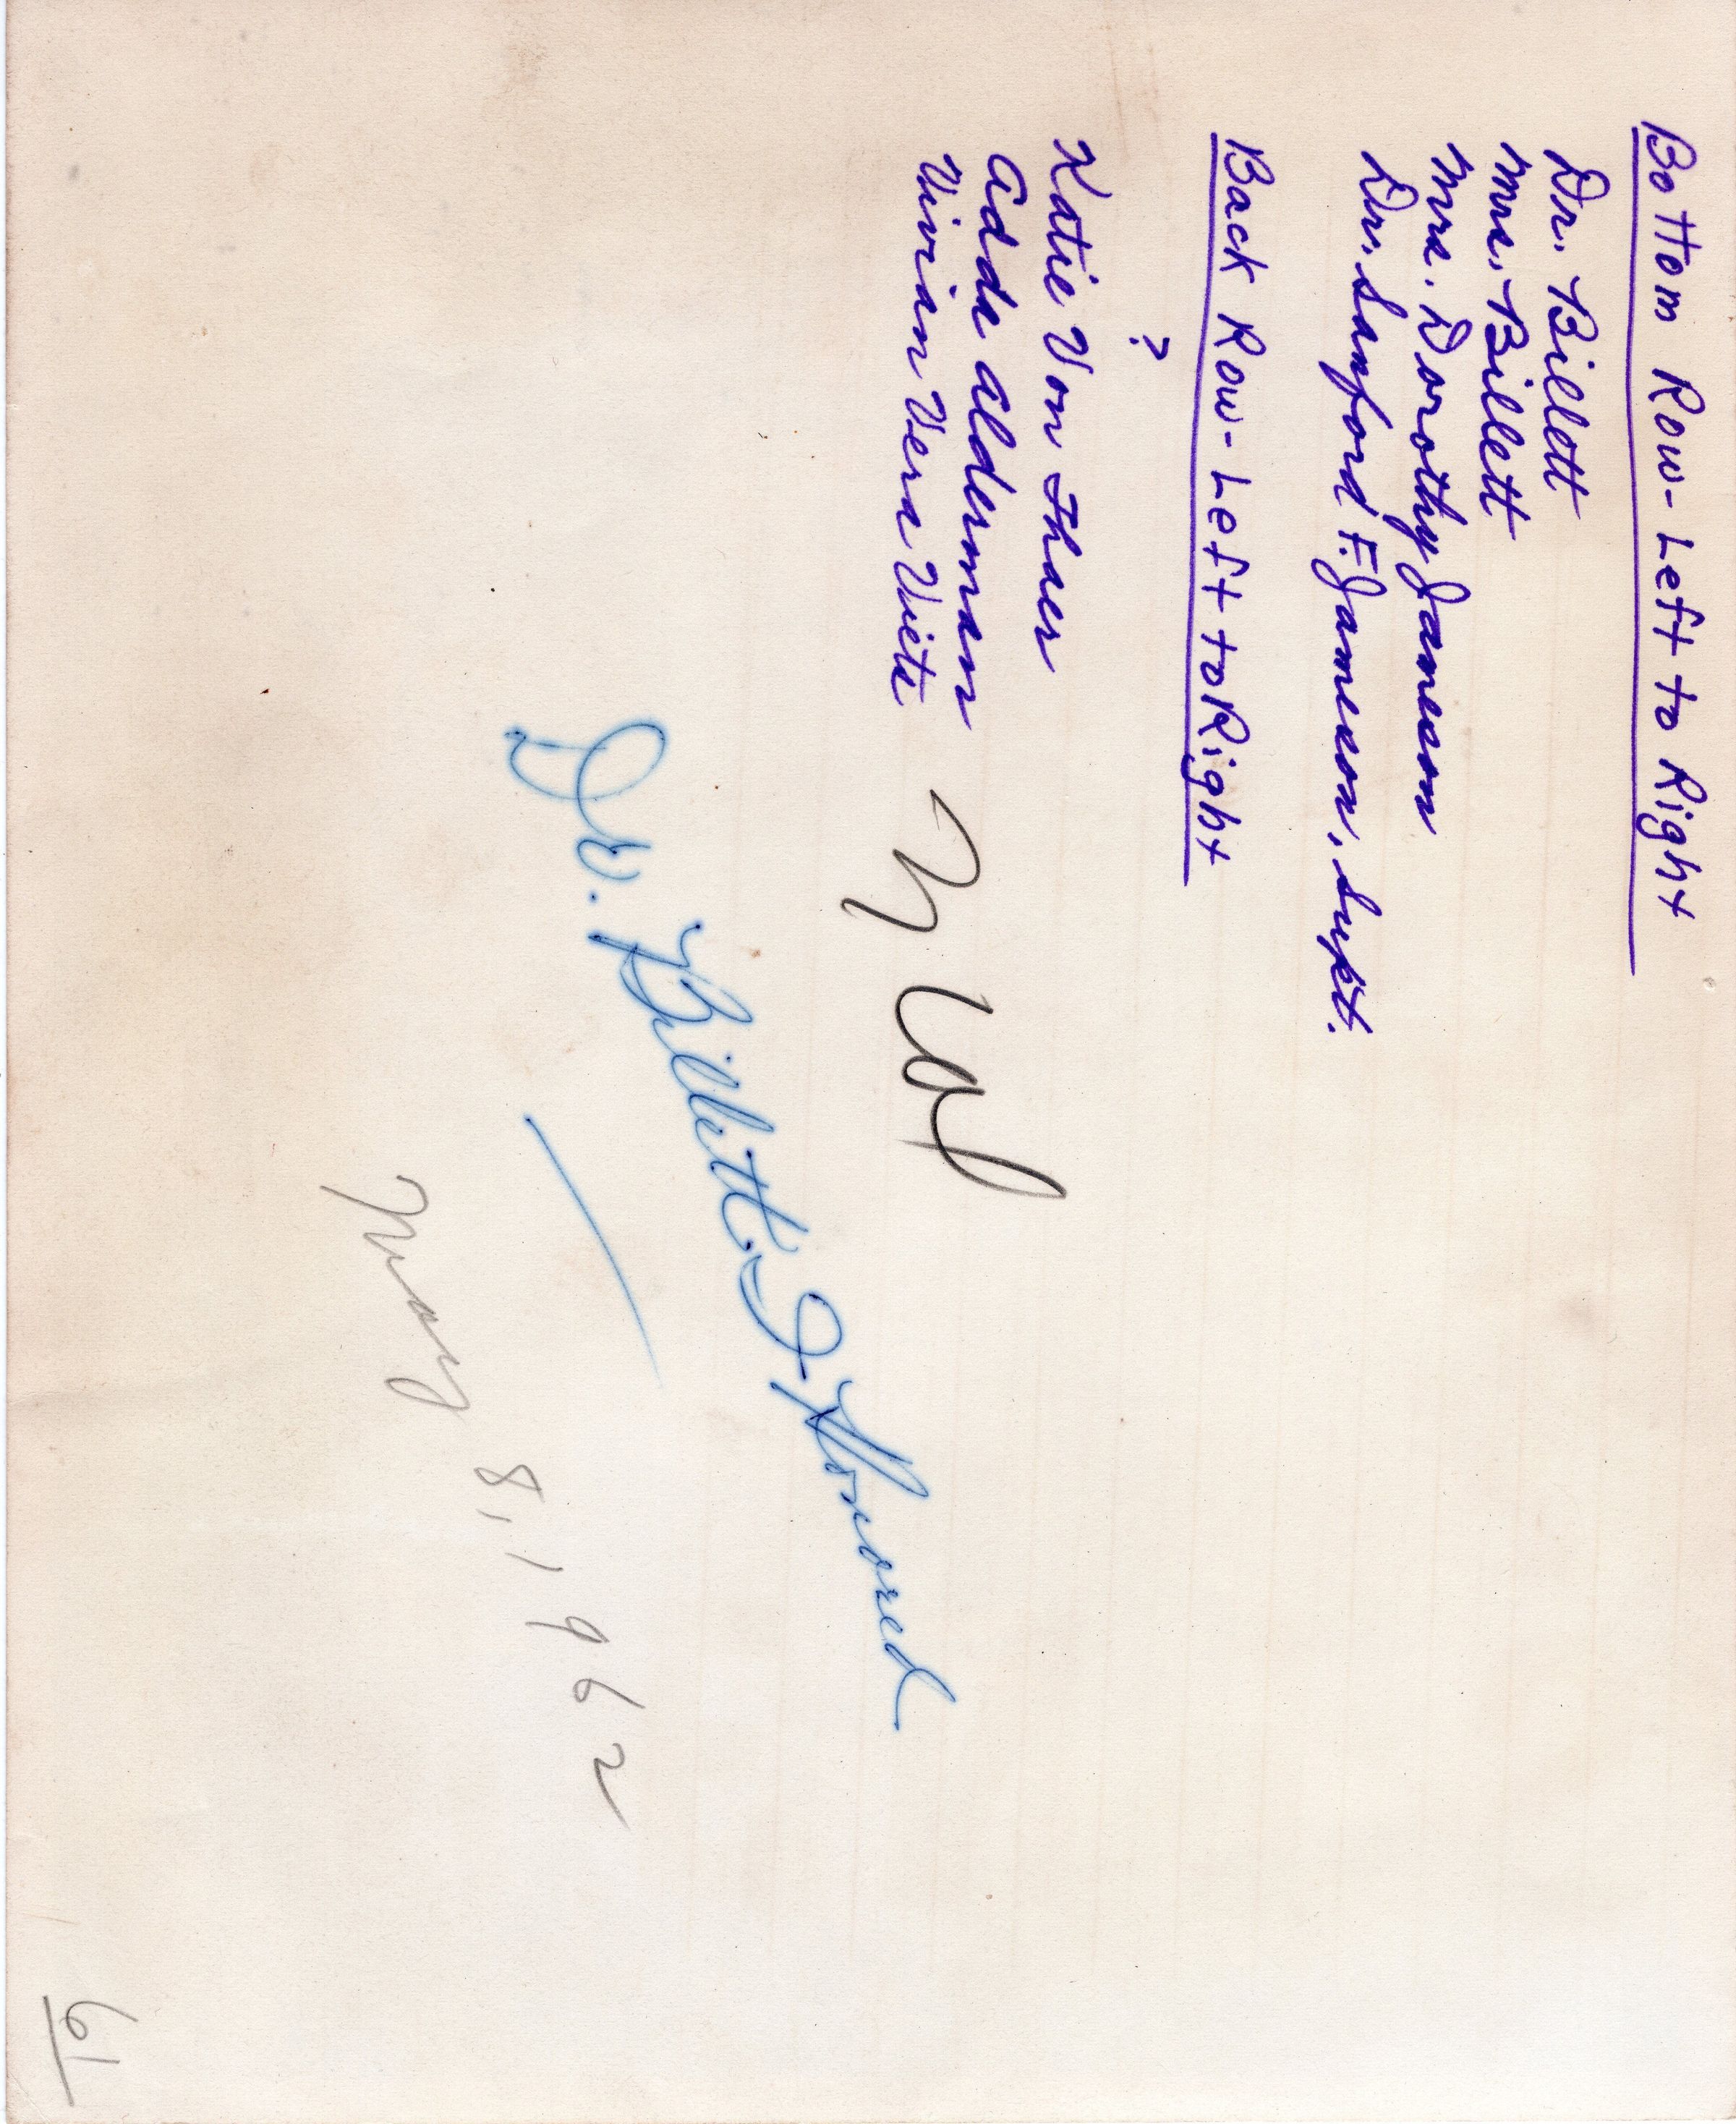 Bottom Row-Left to Right
Dr. Billett
Mrs. Billett
Mrs. Dorothy Jameson
Dr. Sanford F. Jameson, Supt.
Back Row-Left to Right
?
Katie Von Thaer
Adda Alderman
Vivian Vera Viets
Dr. Billett Honored
May 8, 1962
61